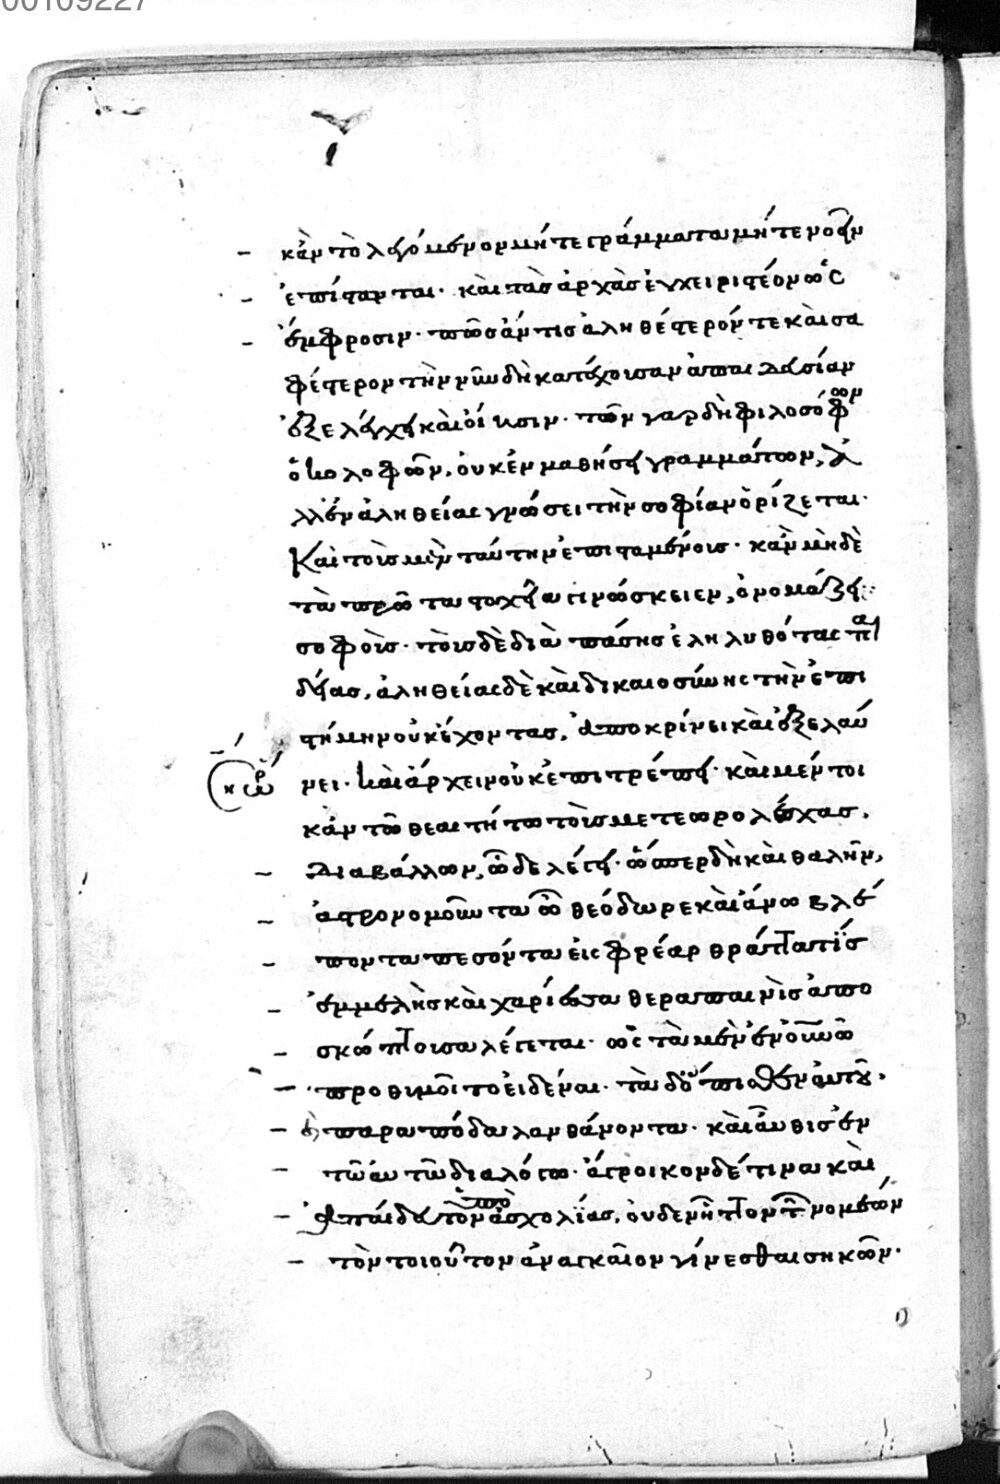 00109227
κἂν τὸ λεγόμενον μήτε γράμματα μήτε νεῖν
ἐπίστανται· καὶ τὰς ἀρχὰς ἐγχειριστέον ὡς
ἔμφροσιν· πῶς ἄν τις ἀληθέστερόν τε καὶ σα
φέστερον τὴν νῦν δὴ κατέχουσαν ἀπαιδευσίαν
ἐξελέγχει καὶ οἴησιν· τῶν γὰρ δὴ φιλοσόφων
ὁ κολοφῶν, οὐκ ἐν μαθήσει γραμμάτων, ἀ
λλ' ἐν ἀληθείας γνώσει τὴν σοφίαν ὁρίζεται·
Καὶ τοὺς μὲν ταύτην ἐπισταμένους· κἂν μηδὲ
τὰ πρῶτα στοιχεῖα γινώσκειεν, ὀνομάζει
σοφούς· τοὺς δὲ διὰ πάσης ἐληλυθότας παι
δείας, ἀληθείας δὲ καὶ δικαιοσύνης τὴν ἐπι
στήμην οὐκ ἔχοντας, ἀποκρίνει καὶ ἐξελαύ
νει· καὶ ἄρχειν οὐκ ἐπιτρέπει· καὶ μέντοι
κἀν τῷ θεαιτήτω τοὺς μετεωρολέσχας,
διαβάλλων, ὧδε λέγει· ὥσπερ δὴ καὶ θαλῆν,
ἀστρονομοῦντα ὦ θεόδωρε καὶ ἄνω βλέ
ποντα πεσόντα εἰς φρέαρ θρᾷττα τίς
ἐμμελὴς καὶ χαρίεσσα θεραπαινὶς ἀπο
σκώπτουσα λέγεται· ὡς τὰ μὲν ἐν οὐνῶ
προθυμοῖτο εἰδέναι· τὰ δ' ὄπισθεν αὐτοῦ,
παρὰ πόδα λανθάνοντα· καὶ αὖθις ἐν
τῶ αὐτῶ διαλόγω· ἄγροικον δέ τινα καὶ
ἀπαίδευτον ὑπὸ ἀσχολίας, οὐδὲν ἧττον τῶν νομέων
τὸν τοιοῦτον ἀναγκαῖον γίνεσθαι σηκῶν·